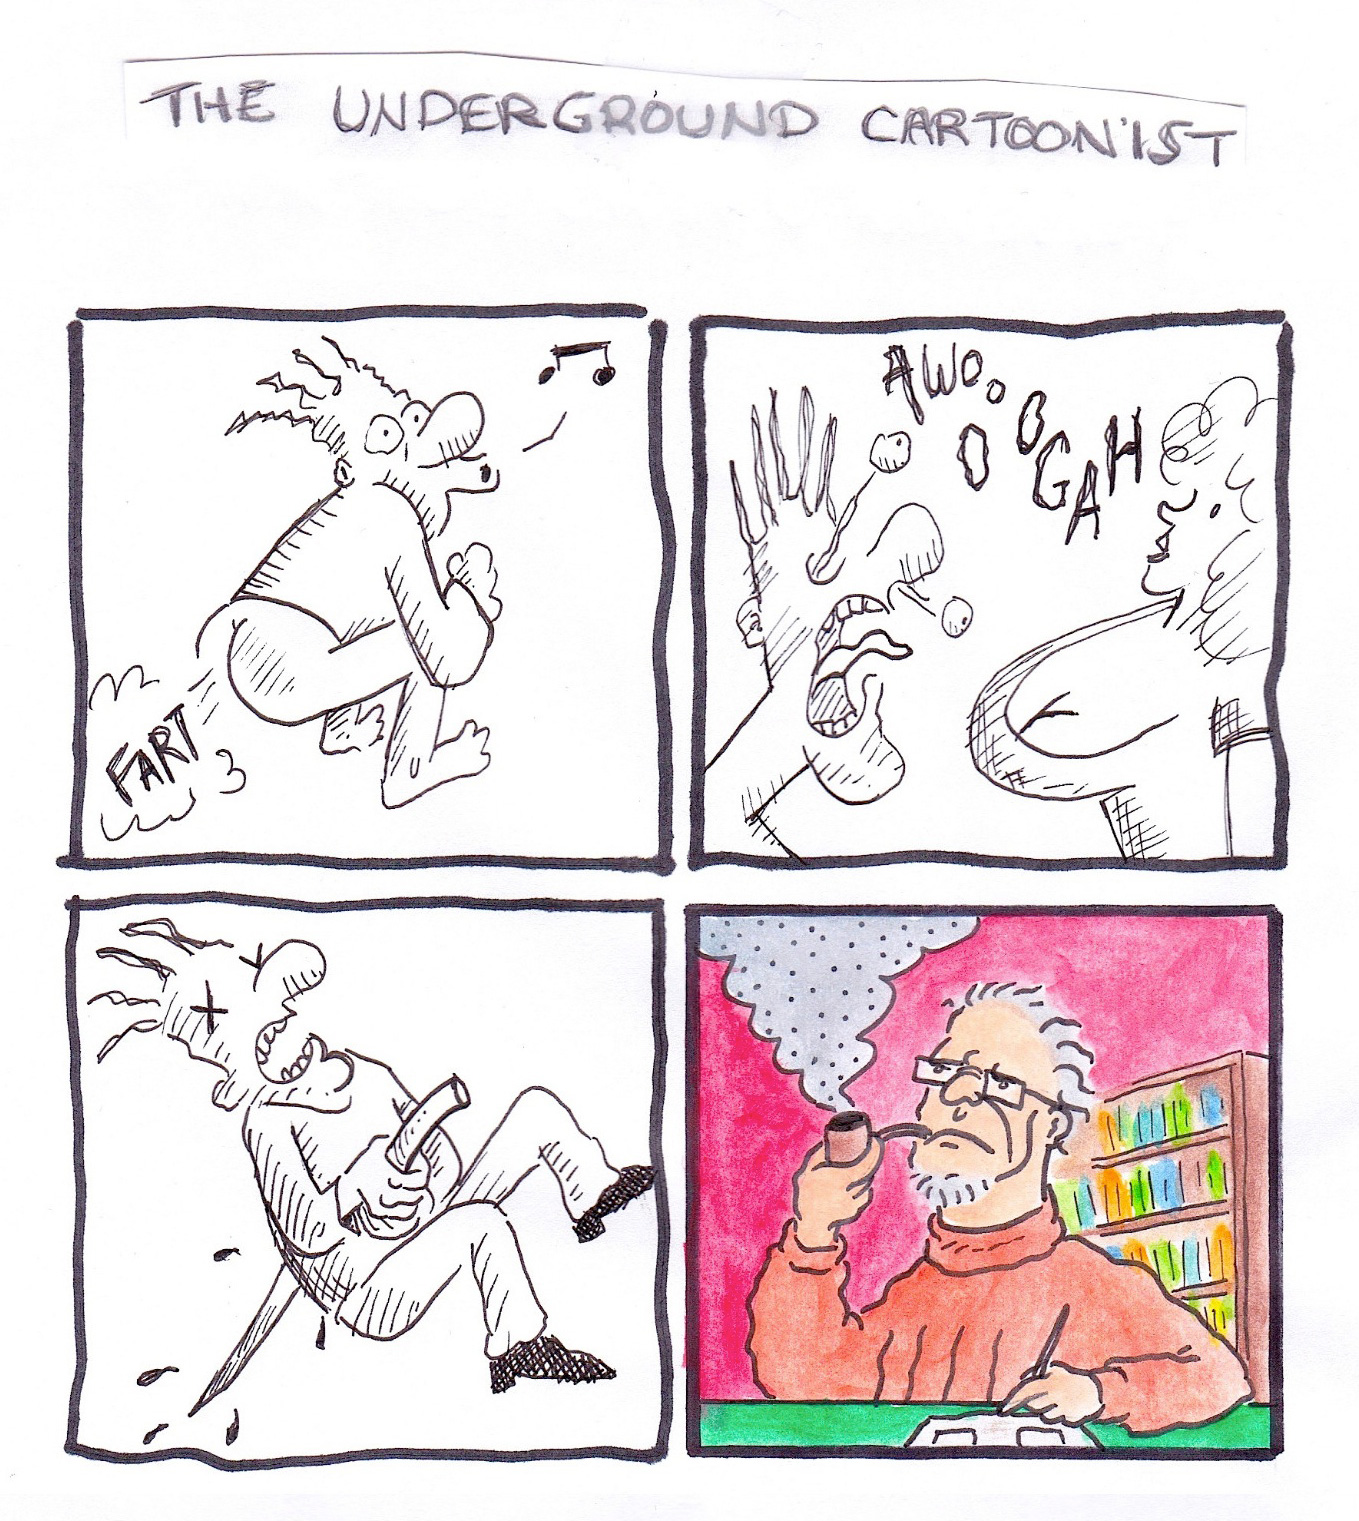 THE UNDERGROUND CARTOONIST
FART
AWOOOGAH